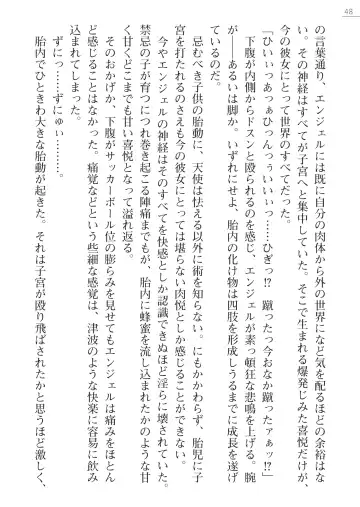 48
の言葉通り、エンジェルには既に自分の肉体から外の世界になど気を配るほどの余裕はな
い。その神経はすべてが子宮へと集中していた。そこで生まれる爆発じみた喜悦だけが、
今の彼女にとって世界のすべてだった。
「ひいぃっあぁあひっんっぅいいぃっ……ひぎっ!?　蹴ったっ今おなか蹴ったァぁッ!?」
下腹が内側からドスンと殴られるのを感じ、エンジェルが素っ頓狂な悲鳴を上げる。腕
か――あるいは脚か。いずれにせよ、胎内の化け物は四肢を形成しうるまでに成長を遂げ
ているのだ。
忌むべき子供の胎動に、天使は怯える以外に術を知らない。にもかかわらず、胎児に子
宮を打たれるのさえも今の彼女にとっては堪らない肉悦としか感じることができない。
今やエンジェルの神経はそのすべてを快感としか認識できぬほど淫らに壊されていた。
禁忌の子が育つにつれ巻き起こる陣痛までもが、胎内に蜂蜜を流し込まれたかのような甘
く甘くどこまでも甘い喜悦となって溢れ返る。
そのおかげか、下腹がサッカーボール位の膨らみを見せてもエンジェルは痛みをほとん
ど感じることはなかった。痛覚などという些細な感覚は、津波のような快楽に容易に飲み
込まれてしまった。
ずにっ……ずにゅぃ………。
胎内でひときわ大きな胎動が起きた。それは子宮が殴り飛ばされたかと思うほど激しく、